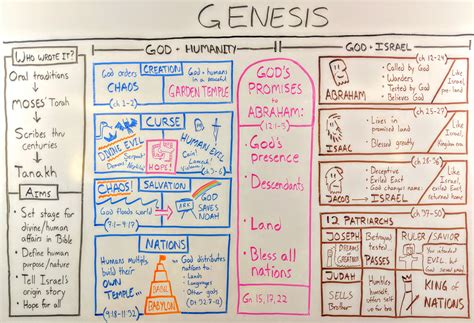 GENESIS
WHO WROTE IT?
Oral traditions
MOSES Torah
Scribes thru
centuries
Tanakh
AIMS
• Set stage for
divine/human
affairs in Bible
• Define human
purpose/nature
• Tell Israel's
origin story
• Hope for all
GOD + HUMANITY
God orders
CHAOS
(ch 1-2)
CREATION
God + humans
in a beautiful
GARDEN TEMPLE
CURSE
DIVINE EVIL
Serpent
HOPE!
HUMAN EVIL
Cain
Lamech
CHAOS!
SALVATION
God floods world
GOD
SAVES
NOAH
NATIONS
Humans multiply,
build their
OWN
TEMPLE...
DARN
BABYLON
God distributes
nations to:
- Lands
- Languages
- Other gods
(Dt 32:7-9)
(9:18-11:32)
GOD'S
PROMISES
to
ABRAHAM:
(12:1-3)
• God's
presence
• Descendants
• Land
• Bless all
nations
Gn. 15, 17, 22
GOD + ISRAEL
ABRAHAM
• Called by God
• Wanders
• Tested by God
• Believes God
(ch 12-24)
Like
Israel
(past/
present)
ISAAC
• Lives in
promised land
• Blessed greatly
(ch 25-27)
Like
Israel
JACOB → ISRAEL
• Deceptive
• Exiled East
• God changes name
(ch 28-36)
Like
Israel,
evil,
exiled,
returned
home
12 PATRIARCHS
(ch 37-50)
JOSEPH
DREAMS
GREATNESS
Betrayed,
tested...
PASSES
RULER/SAVIOR
"You intended
EVIL, but
God used
JUDAH
SELLS
Brother
Humbles
himself,
offers self
for bro
KING of
NATIONS